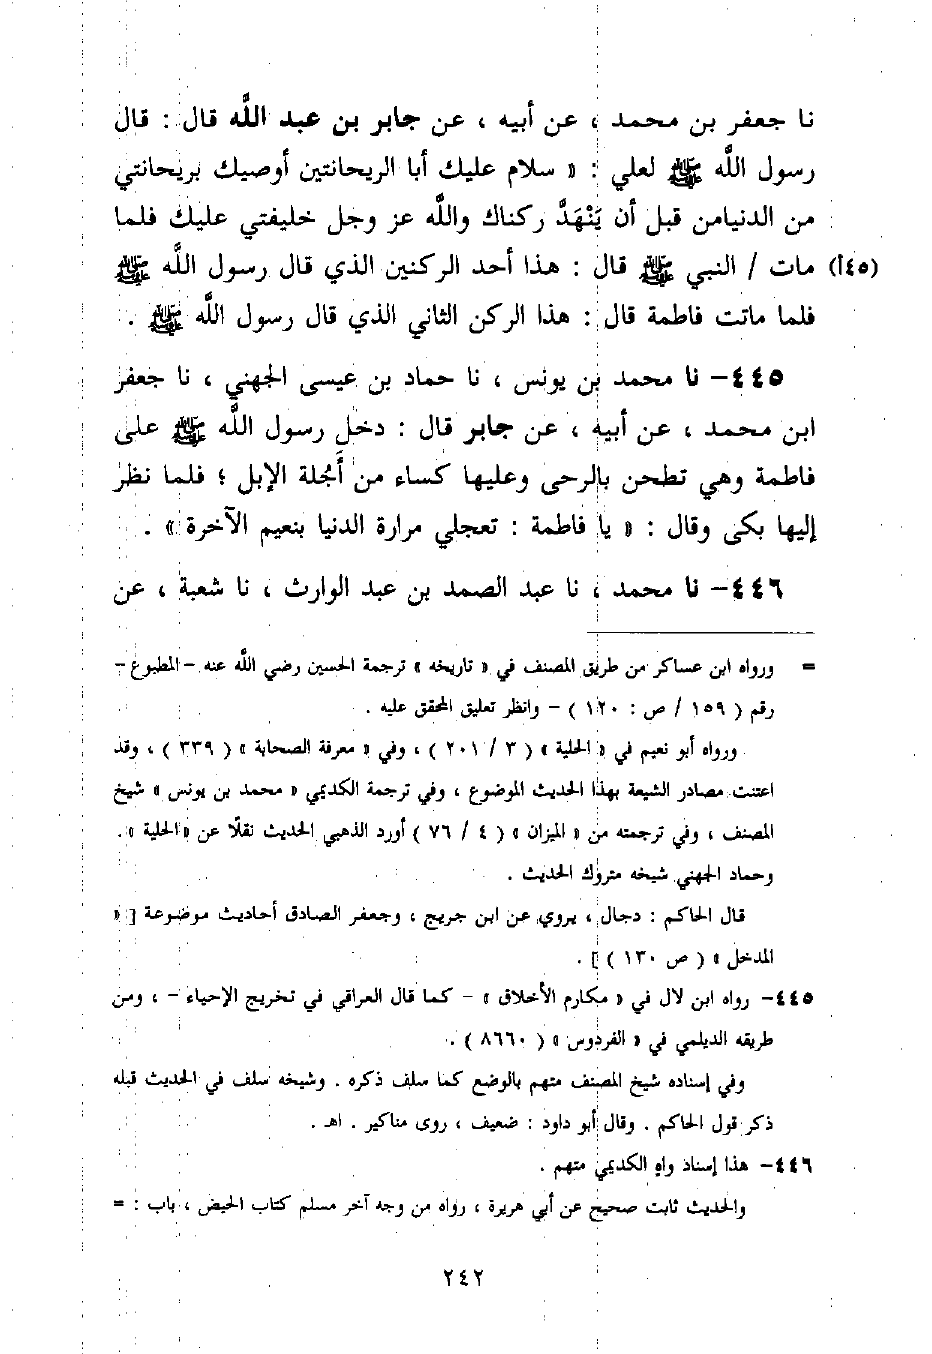 نا جعفر بن محمد ، عن أبيه ، عن جابر بن عبد الله قال : قال
رسول الله ﷺ لعلي : « سلام عليك أبا الريحانتين أوصيك بريحانتي
من الدنيا من قبل أن يَنْهَدَّ ركناك والله عز وجل خليفتي عليك فلما
(٤٥أ) مات / النبي ﷺ قال : هذا أحد الركنين الذي قال رسول الله ﷺ
فلما ماتت فاطمة قال : هذا الركن الثاني الذي قال رسول الله ﷺ .
٤٤٥– نا محمد بن يونس ، نا حماد بن عيسى الجهني ، نا جعفر
ابن محمد ، عن أبيه ، عن جابر قال : دخل رسول الله ﷺ على
فاطمة وهي تطحن بالرحى وعليها كساء من أَجُلة الإبل ؛ فلما نظر
إليها بكى وقال : « يا فاطمة : تعجلي مرارة الدنيا بنعيم الآخرة » .
٤٤٦– نا محمد ، نا عبد الصمد بن عبد الوارث ، نا شعبة ، عن
= ورواه ابن عساكر من طريق المصنف في « تاريخه » ترجمة الحسين رضي الله عنه –المطبوع–
رقم ( ١٥٩ / ص : ١٢٠ ) – وانظر تعليق المحقق عليه .
ورواه أبو نعيم في « الحلية » ( ٣ / ٢٠١ ) ، وفي « معرفة الصحابة » ( ٣٣٩ ) ، وقد
اعتنت مصادر الشيعة بهذا الحديث الموضوع ، وفي ترجمة الكديمي « محمد بن يونس » شيخ
المصنف ، وفي ترجمته من « الميزان » ( ٤ / ٧٦ ) أورد الذهبي الحديث نقلًا عن « الحلية » .
وحماد الجهني شيخه متروك الحديث .
قال الحاكم : دجال ، يروي عن ابن جريج ، وجعفر الصادق أحاديث موضوعة [ «
المدخل » ( ص ١٣٠ ) ] .
٤٤٥– رواه ابن لال في « مكارم الأخلاق » – كما قال العراقي في تخريج الإحياء – ، ومن
طريقه الديلمي في « الفردوس » ( ٨٦٦٠ ) .
وفي إسناده شيخ المصنف متهم بالوضع كما سلف ذكره . وشيخه سلف في الحديث قبله
ذكر قول الحاكم . وقال أبو داود : ضعيف ، روى مناكير . اهـ .
٤٤٦– هذا إسناد واهٍ الكديمي متهم .
والحديث ثابت صحيح عن أبي هريرة ، رواه من وجه آخر مسلم كتاب الحيض ، باب : =
٢٤٢